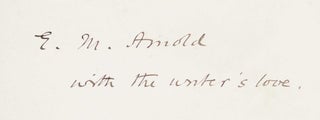 E. M. Arnold
with the writer's love.